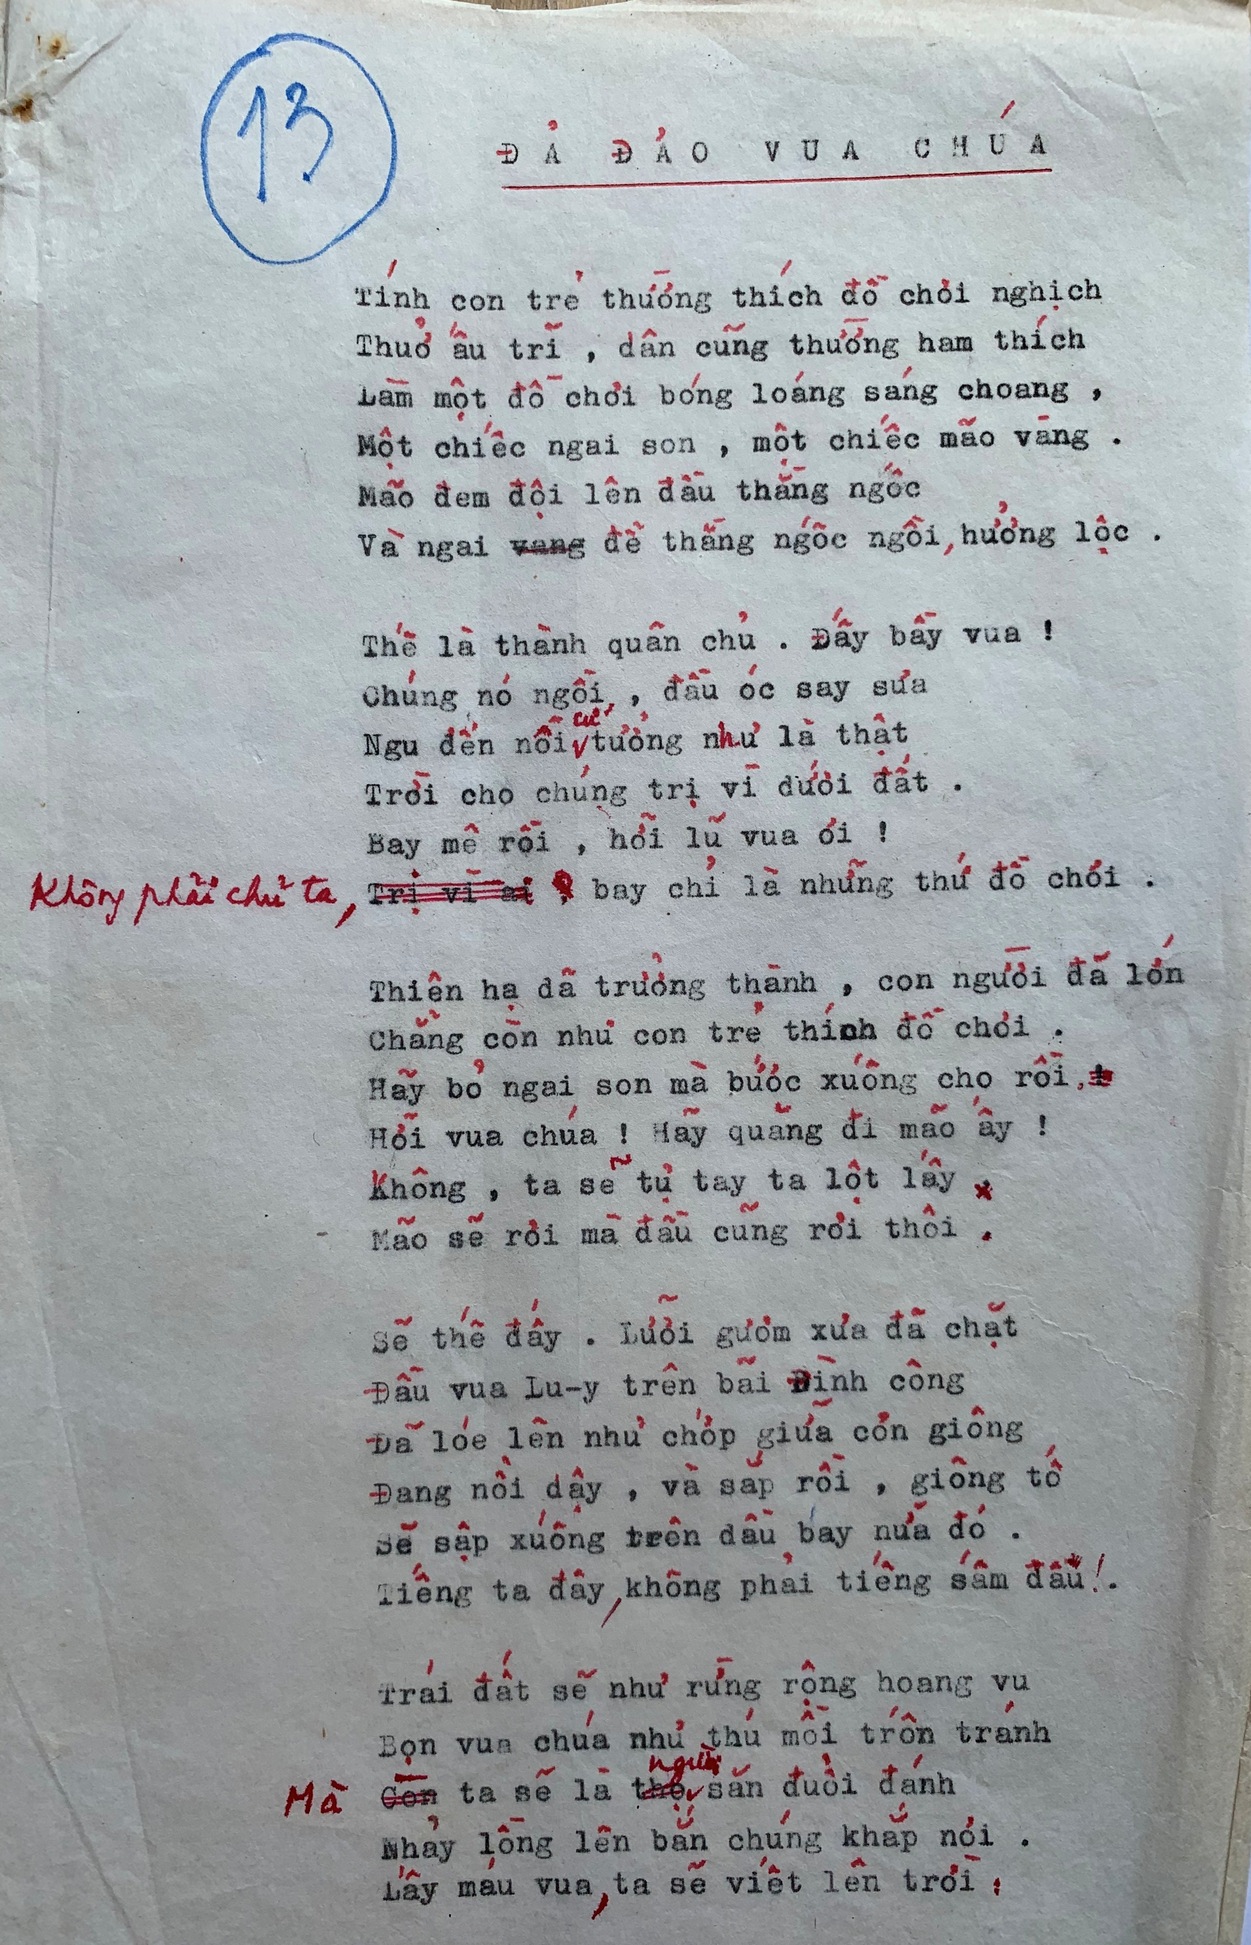 13
ĐẢ ĐẢO VUA CHÚA
Tính con trẻ thường thích đồ chơi nghịch
Thuở ấu trĩ , dân cũng thường ham thích
Làm một đồ chơi bóng loáng sáng choang ,
Một chiếc ngai son , một chiếc mão vàng .
Mão đem đội lên đầu thằng ngốc
Và ngai vang để thằng ngốc ngồi, hưởng lộc .
Thế là thành quân chủ . Đấy bầy vua !
Chúng nó ngồi , đầu óc say sưa
Ngu đến nỗi cứ tưởng như là thật
Trời cho chúng trị vì dưới đất .
Bay mê rồi , hỡi lũ vua ơi !
Không phải chử ta, Trị vì ai ? bay chỉ là những thứ đồ chơi .
Thiên hạ dã trưởng thành , con người đã lớn
Chẳng còn như con trẻ thích đồ chơi .
Hãy bỏ ngai son mà bước xuống cho rồi, !
Hỡi vua chúa ! Hãy quăng đi mão ấy !
Không , ta sẽ tự tay ta lột lấy .
Mão sẽ rơi mà đầu cũng rơi thôi .
Sẽ thế đấy . Lưỡi gươm xưa đã chặt
Đầu vua Lu-y trên bãi Đình công
Đã lóe lên như chớp giữa cơn giông
Đang nổi dậy , và sắp rồi , giông tố
Sẽ sập xuống trên đầu bay nữa đó .
Tiếng ta đây, không phải tiếng sấm đâu !.
Trái đất sẽ như rừng rộng hoang vu
Bọn vua chúa như thú mồi trốn tránh
Mà Còn ta sẽ là thợ người săn đuổi đánh
Nhảy lồng lên bắn chúng khắp nơi .
Lấy máu vua, ta sẽ viết lên trời :